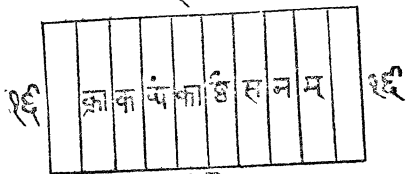 १६ क्रा क पं का ष्ठ स न म १६